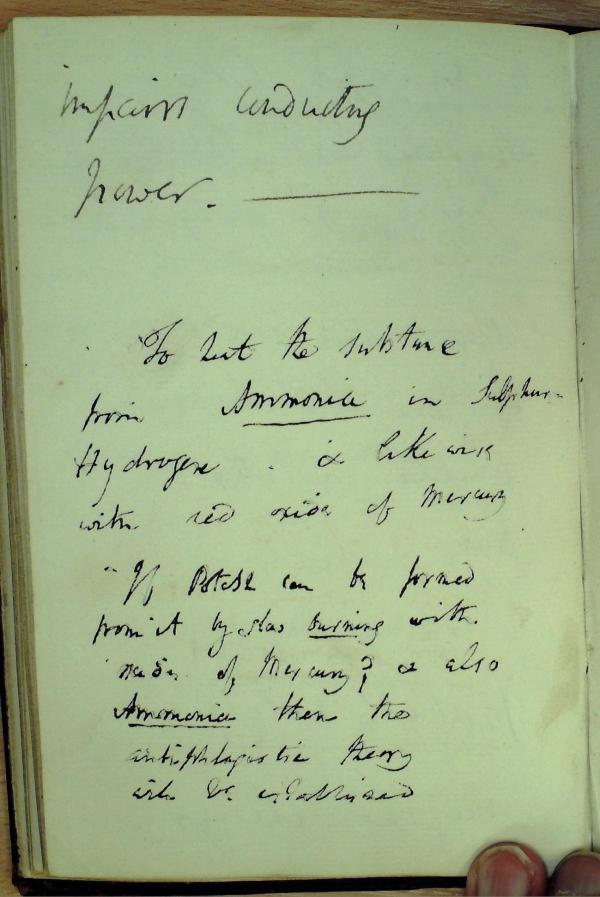 impairs conducting
power. —
To heat the substance
from Ammonia in Sulphur-
Hydrogene . & likewise
with red oxide of Mercury
"If Potash can be formed
from it by slow burning with
oxide of Mercury? & also
Ammonia then the
antiphlogistic theory
will be established